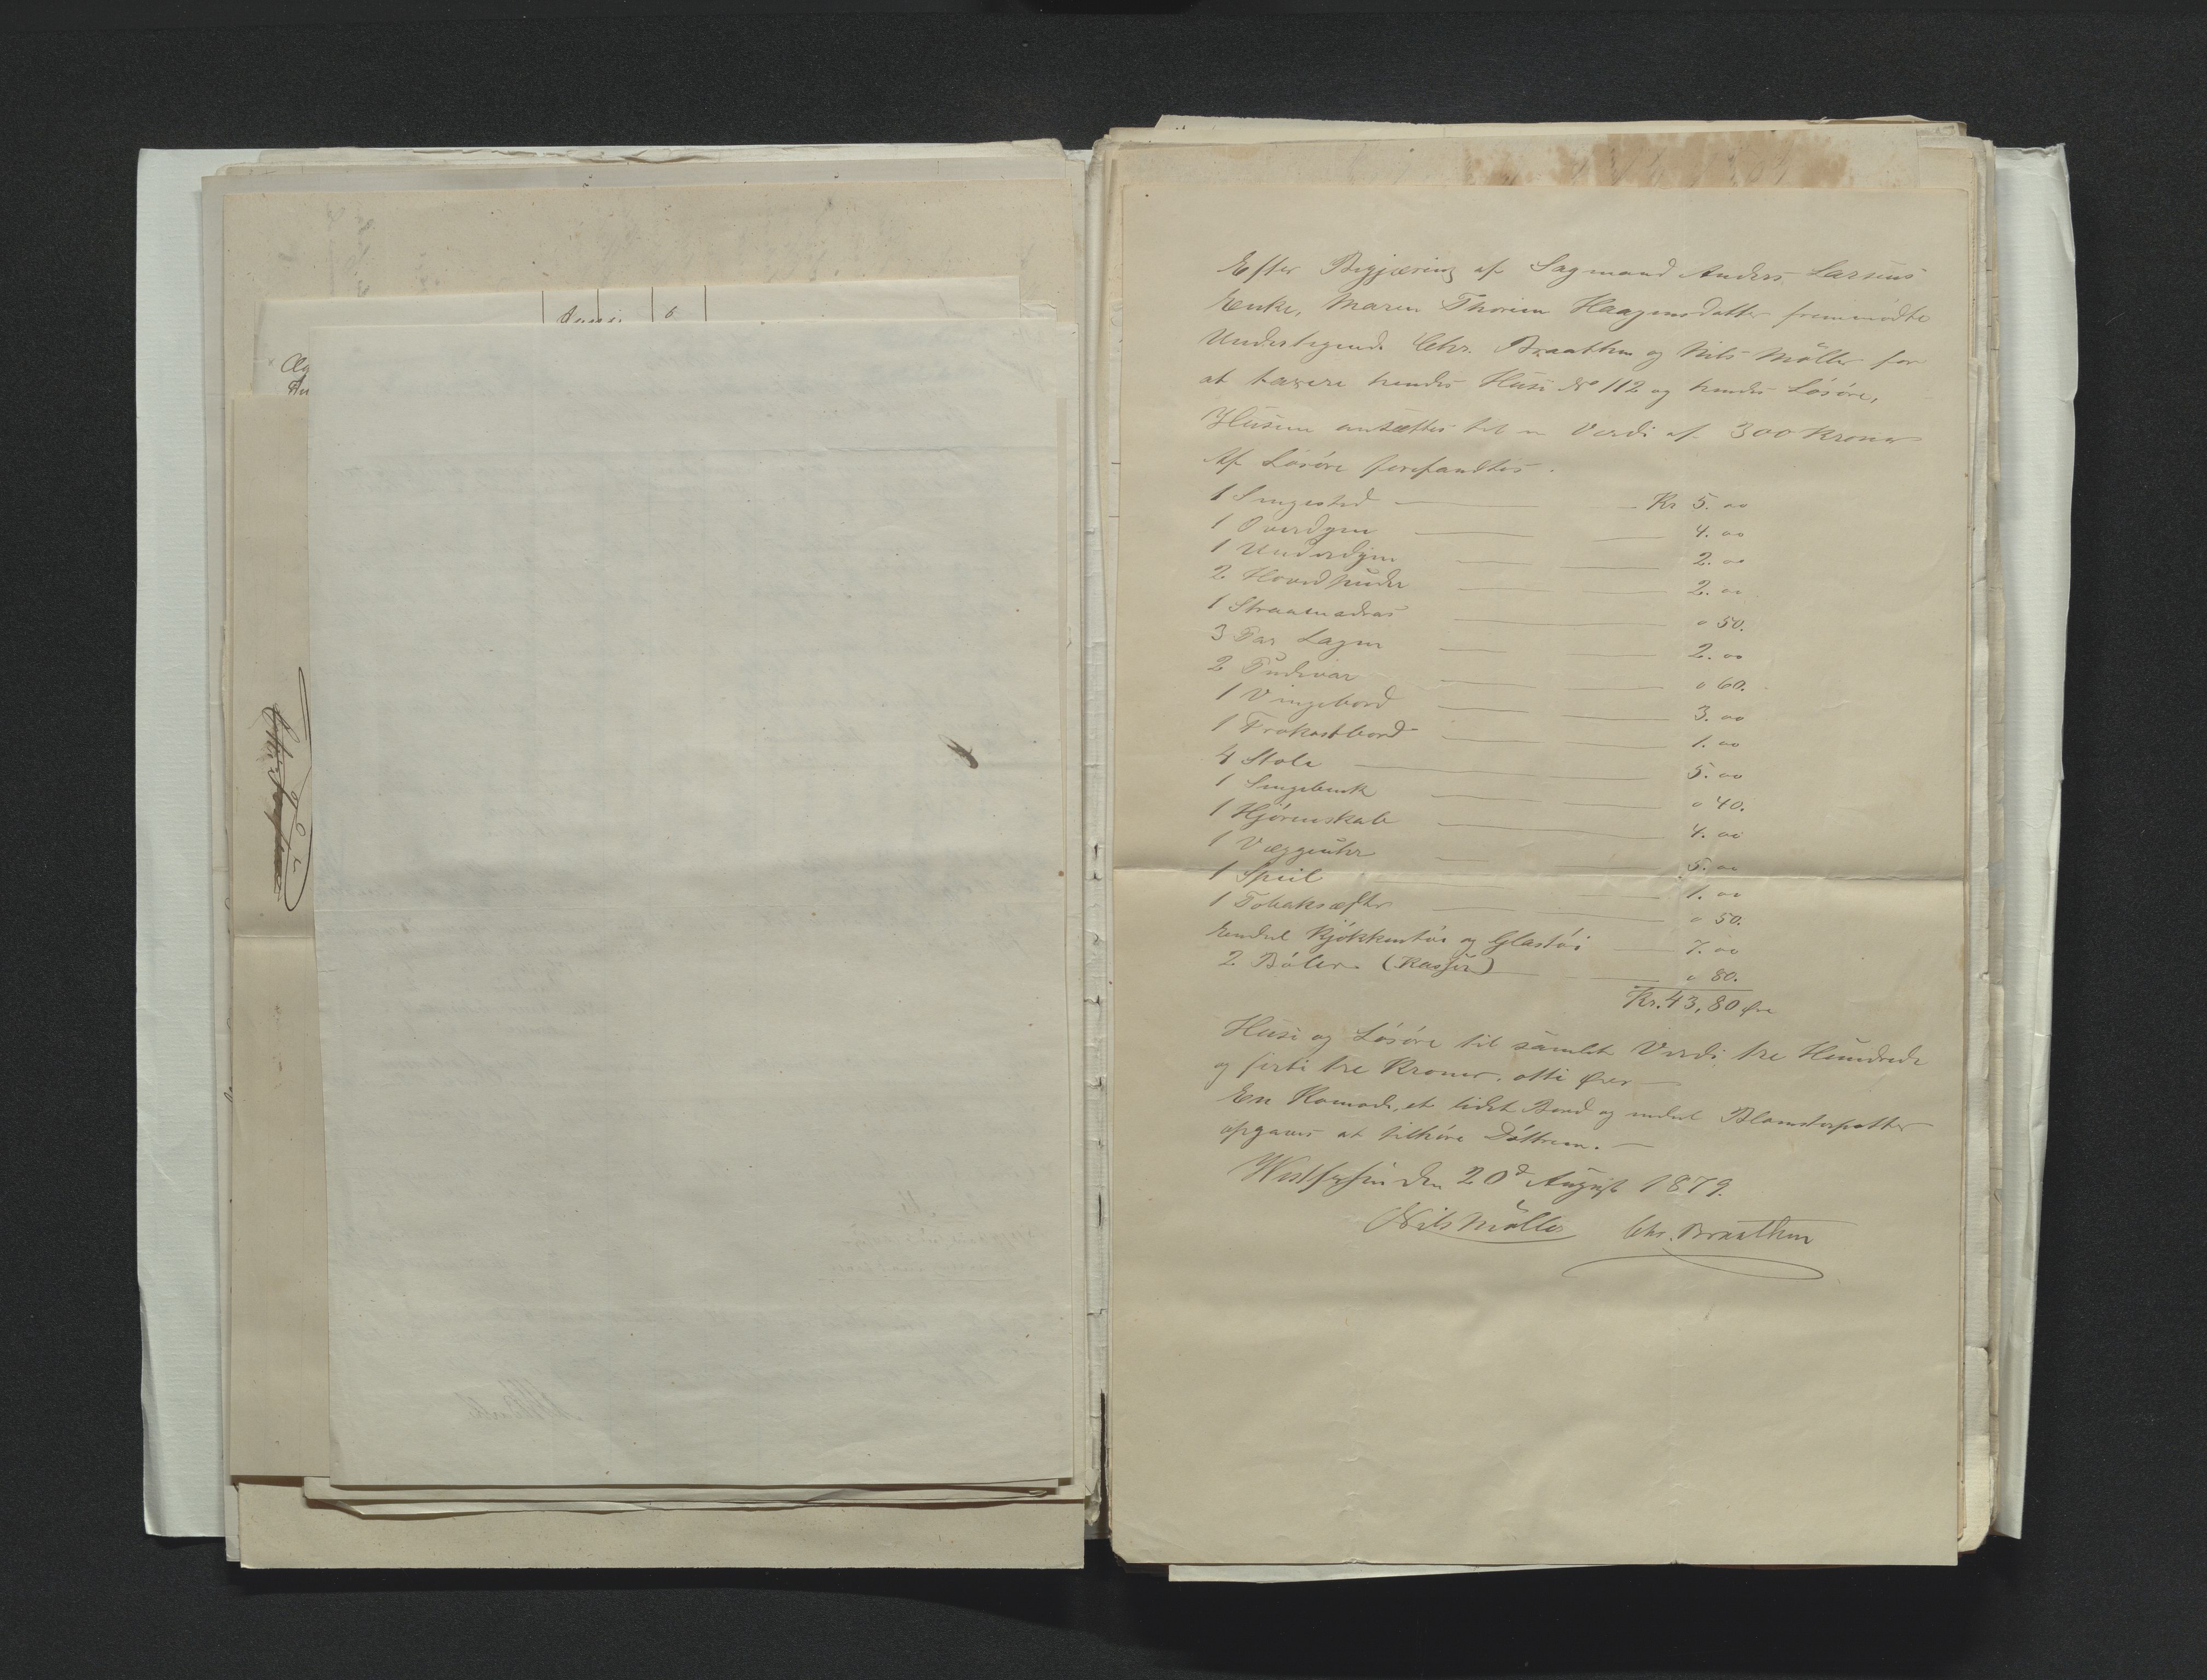 Efter Begjæring af Sagmand Anders Larsens
Enke, Maren Thorine Haagensdatter fremmødte
Undertegnede Chr. Braathen og Nils Möller for
at taxere hendes Huse No 112 og hendes Lösöre,
Husene ansættes til en Verdi af 300 Kroner
Af Lösöre forefandtes.
1 Sengested Kr 5. 00
1 Overdyne 4. 00
1 Underdyne 2. 00
2 Hovedpuder 2. 00
1 Straamadras " 50.
3 Par Lagen 2. 00
2 Pudevar " 60.
1 Vingebord 3. 00
1 Frokostbord 1. 00
4 Stole 5. 00
1 Sengebenk " 40.
1 Hjörneskab 4. 00
1 Væggeuhr 5. 00
1 Speil 1. 00
1 Tobaksæske " 50.
Endel Kjökkentöi og Glastöi 7. 00
2 Baljer (Kasser) " 80.
Kr. 43,80 Øre
Huse og Lösöre til samlet Verdi tre Hundrede
og firti tre Kroner, otti Øre
En Komode, et lidet Bord og endel Blomsterpotter
opgaves at tilhöre Döttrene.
Vestfossen den 20d August 1879.
Nils Möller Chr. Braathen